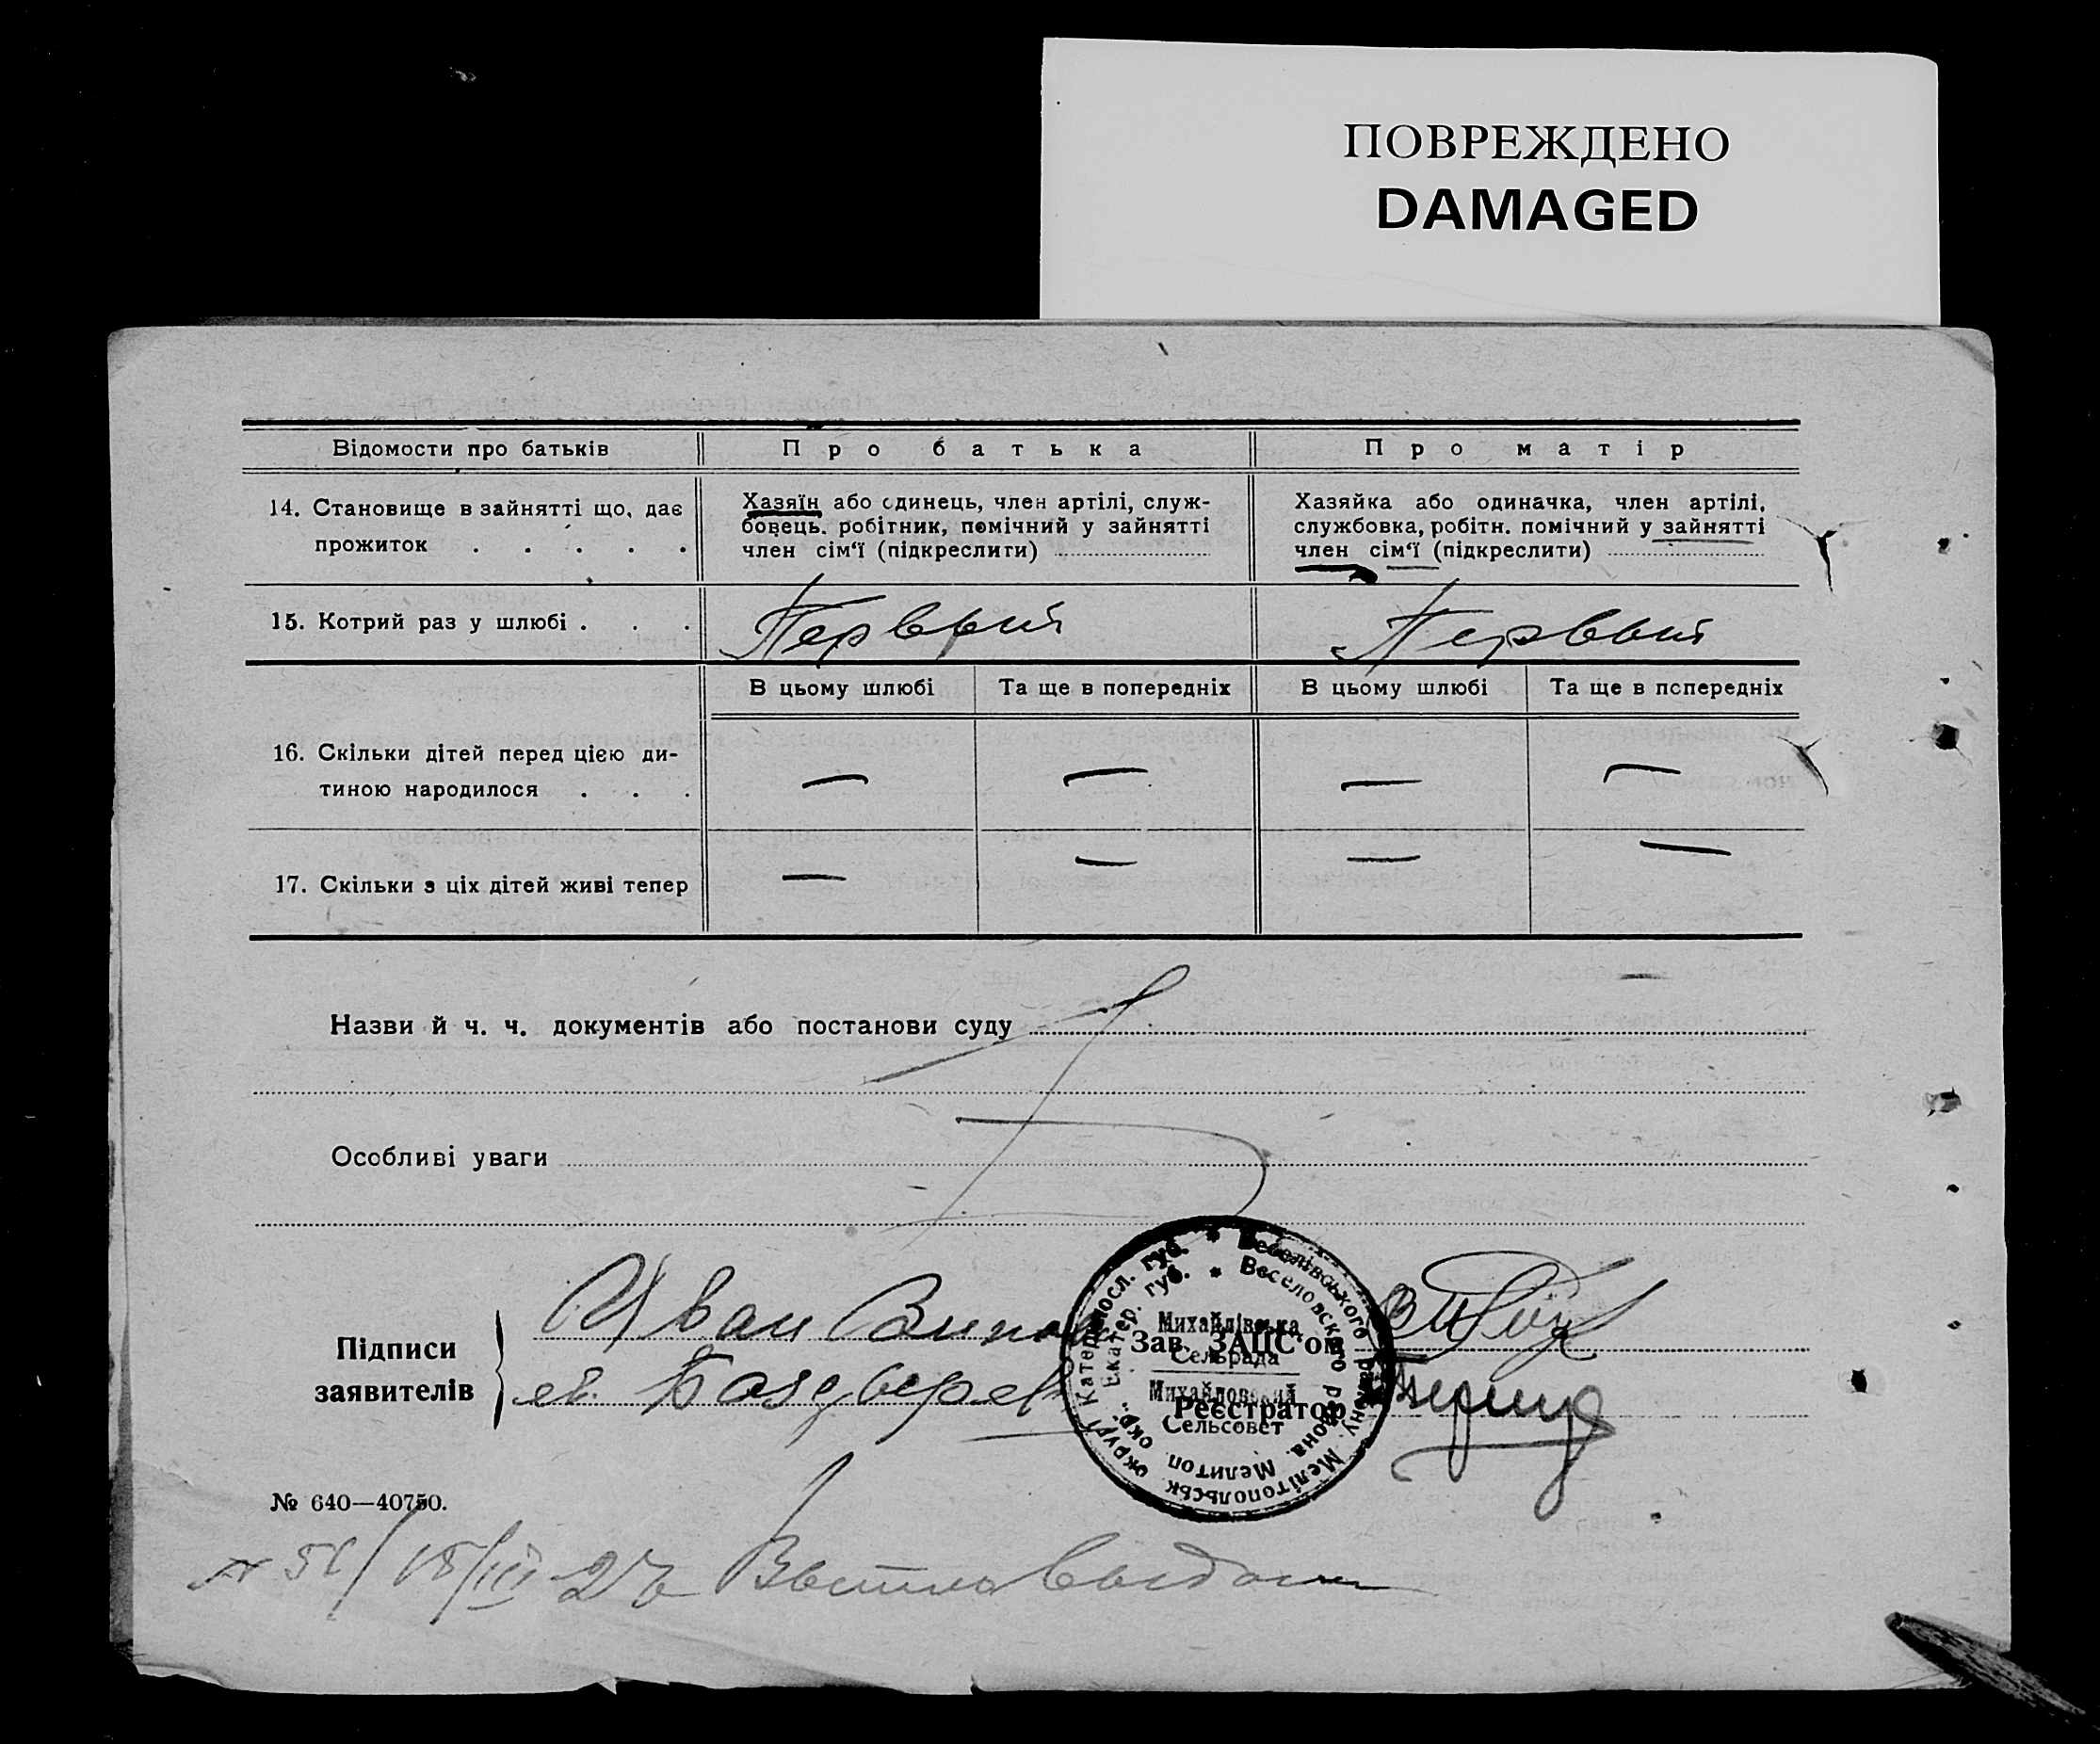 ПОВРЕЖДЕНО
DAMAGED
Відомости про батьків
Про батька
Про матір
14. Становище в зайнятті що, дає
прожиток . . . . .
Хазяїн або одинець, член артілі, служ-
бовець, робітник, помічний у зайнятті
член сім'ї (підкреслити)
Хазяйка або одиначка, член артілі,
службовка, робітн. помічний у зайнятті
член сім'ї (підкреслити)
15. Котрий раз у шлюбі . . .
Первый
Первый
В цьому шлюбі
Та ще в попередніх
В цьому шлюбі
Та ще в попередніх
16. Скільки дітей перед цією ди-
тиною народилося . . .
— — — —
17. Скільки з ціх дітей живі тепер
— — — —
Назви й ч. ч. документів або постанови суду
Особливі уваги
Підписи
заявителів
Иван
Зав. ЗАЦС'ом
Реєстратор
Катериносл. губ. * Веселівського району. Мелітопольськ округ
Екатер. губ. * Веселовского района. Мелитоп. окр.
Михайлівська
Сельрада
Михайловский
Сельсовет
№ 640—40750.